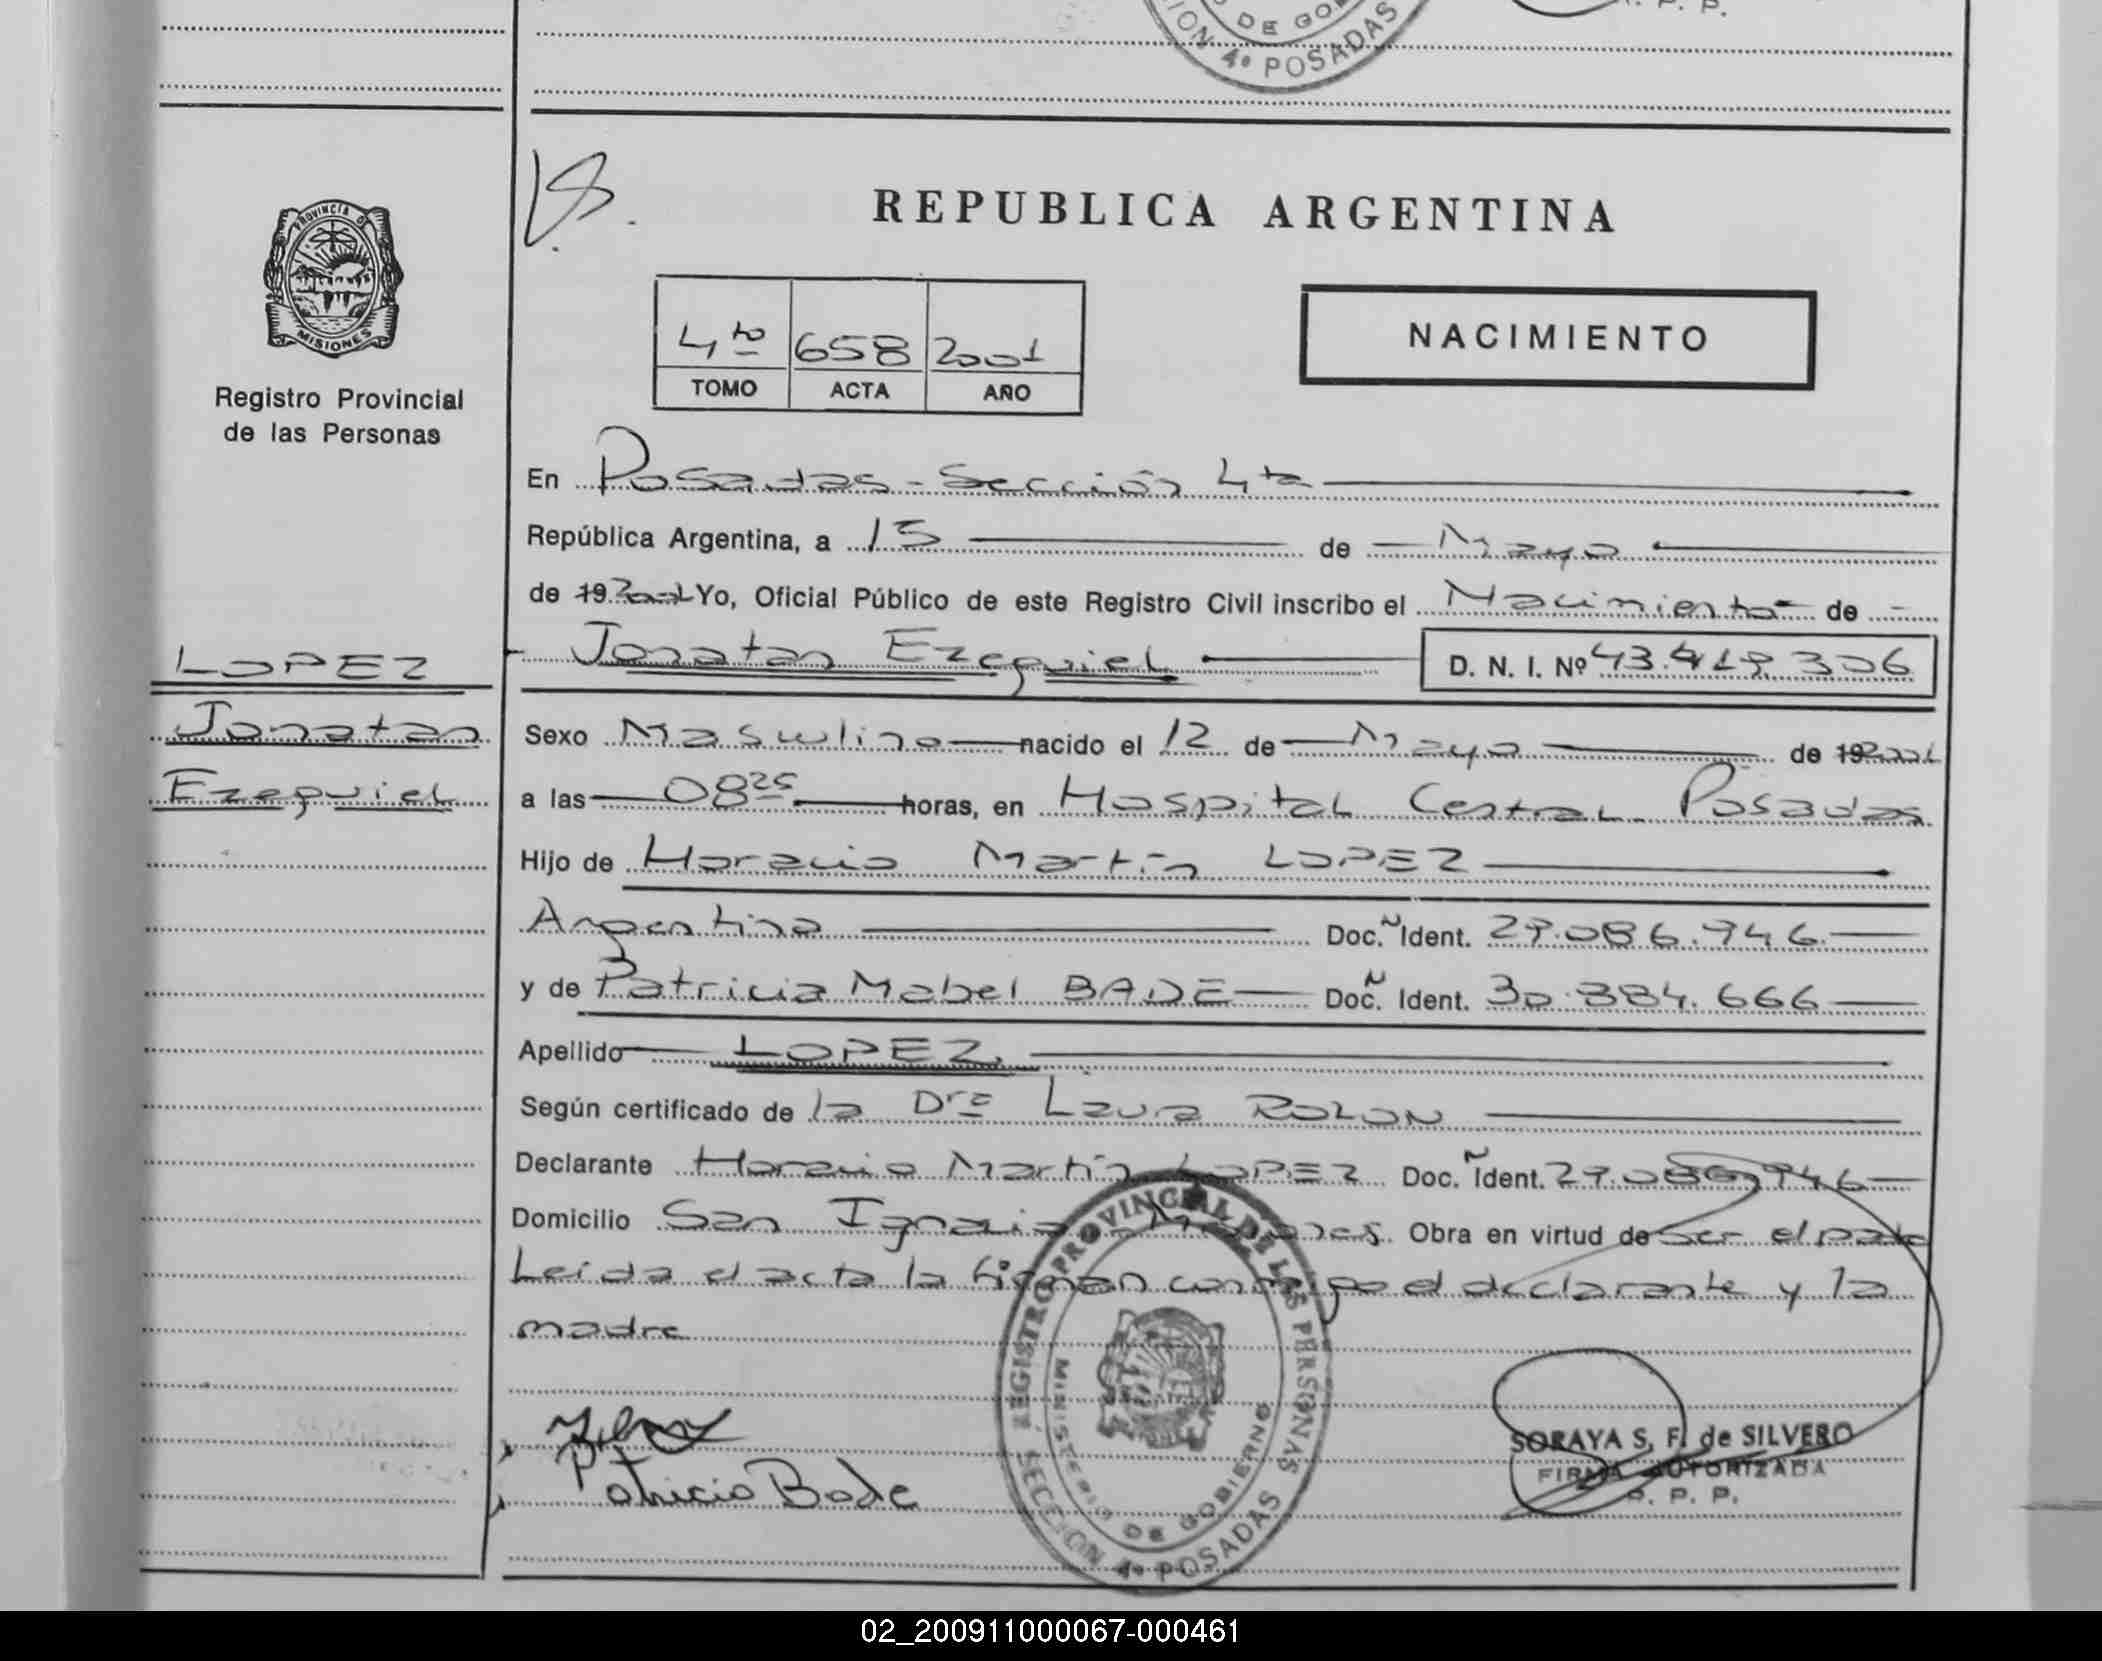 DE GOB
CION 4ª POSADAS
. P. P.
REPUBLICA ARGENTINA
PROVINCIA DE
MISIONES
Registro Provincial
de las Personas
4to 658 2001
TOMO ACTA AÑO
NACIMIENTO
En Posadas - Sección 4ta
República Argentina, a 15 de Mayo
de 19 2001 Yo, Oficial Público de este Registro Civil inscribo el Nacimiento de
Jonatan Ezequiel D. N. I. Nº 43.419.306
LOPEZ
Jonatan
Ezequiel
Sexo Masculino nacido el 12 de Mayo de 19 2001
a las 08 25 horas, en Hospital Central Posadas
Hijo de Horacio Martín LOPEZ
Argentina Doc. Ñ Ident. 29.086.946
y de Patricia Mabel BADE Doc. Ñ Ident. 30.884.666
Apellido LOPEZ
Según certificado de la Dra Laura ROLON
Declarante Horacio Martín LOPEZ Doc. Ñ Ident. 29.086.946
Domicilio San Ignacio - Misiones. Obra en virtud de ser el padre
Leida el acta la firman conmigo el declarante y la
madre
REGISTRO PROVINCIAL DE LAS PERSONAS
MINISTERIO DE GOBIERNO
SECCION 4ª POSADAS
Patricia Bade
SORAYA S. F. de SILVERO
FIRMA AUTORIZADA
R. P. P.
02_200911000067-000461